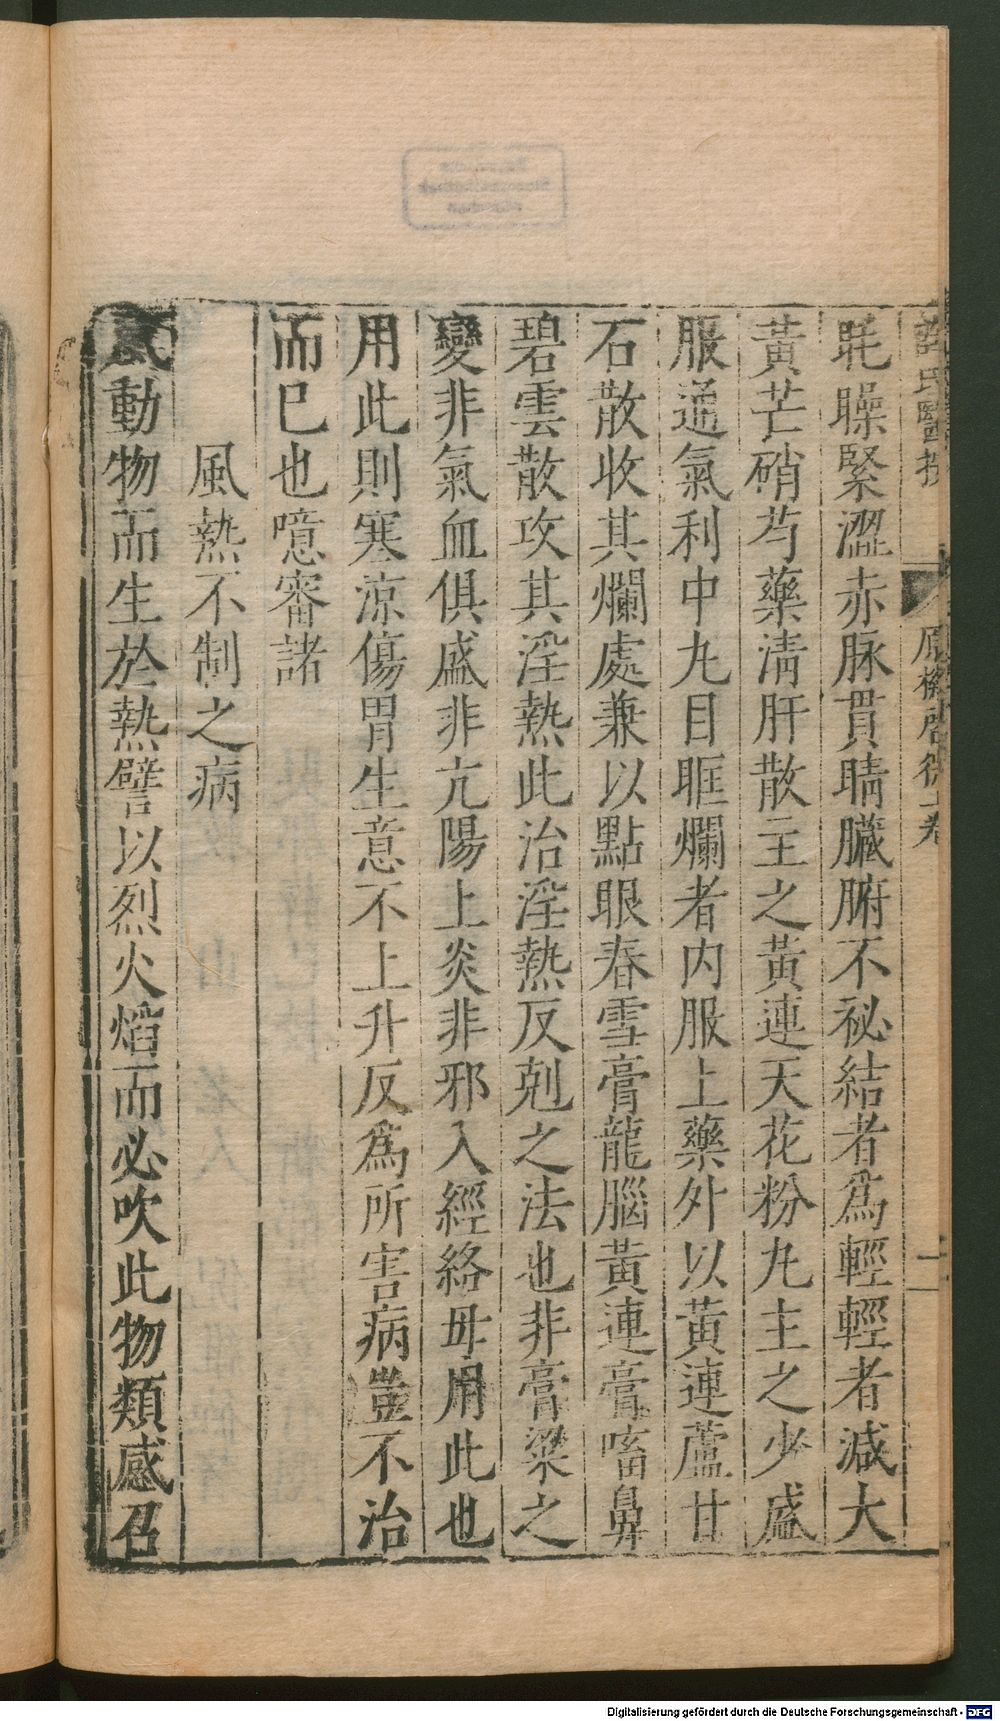 薛氏醫按 原機啓微上卷 二
眊矂緊澀赤脉貫睛臟腑不祕結者爲輕輕者減大
黃芒硝芍藥淸肝散主之黃連天花粉丸主之少盛
服通氣利中丸目眶爛者内服上藥外以黃連蘆甘
石散收其爛處兼以點眼春雪膏龍腦黃連膏㗜鼻
碧雲散攻其淫熱此治淫熱反剋之法也非膏粱之
變非氣血俱盛非亢陽上炎非邪入經絡毋用此也
用此則寒涼傷胃生意不上升反爲所害病豈不治
而已也噫審諸
風熱不制之病
風動物而生於熱譬以烈火熖而必吹此物類感召
Digitalisierung gefördert durch die Deutsche Forschungsgemeinschaft - DFG